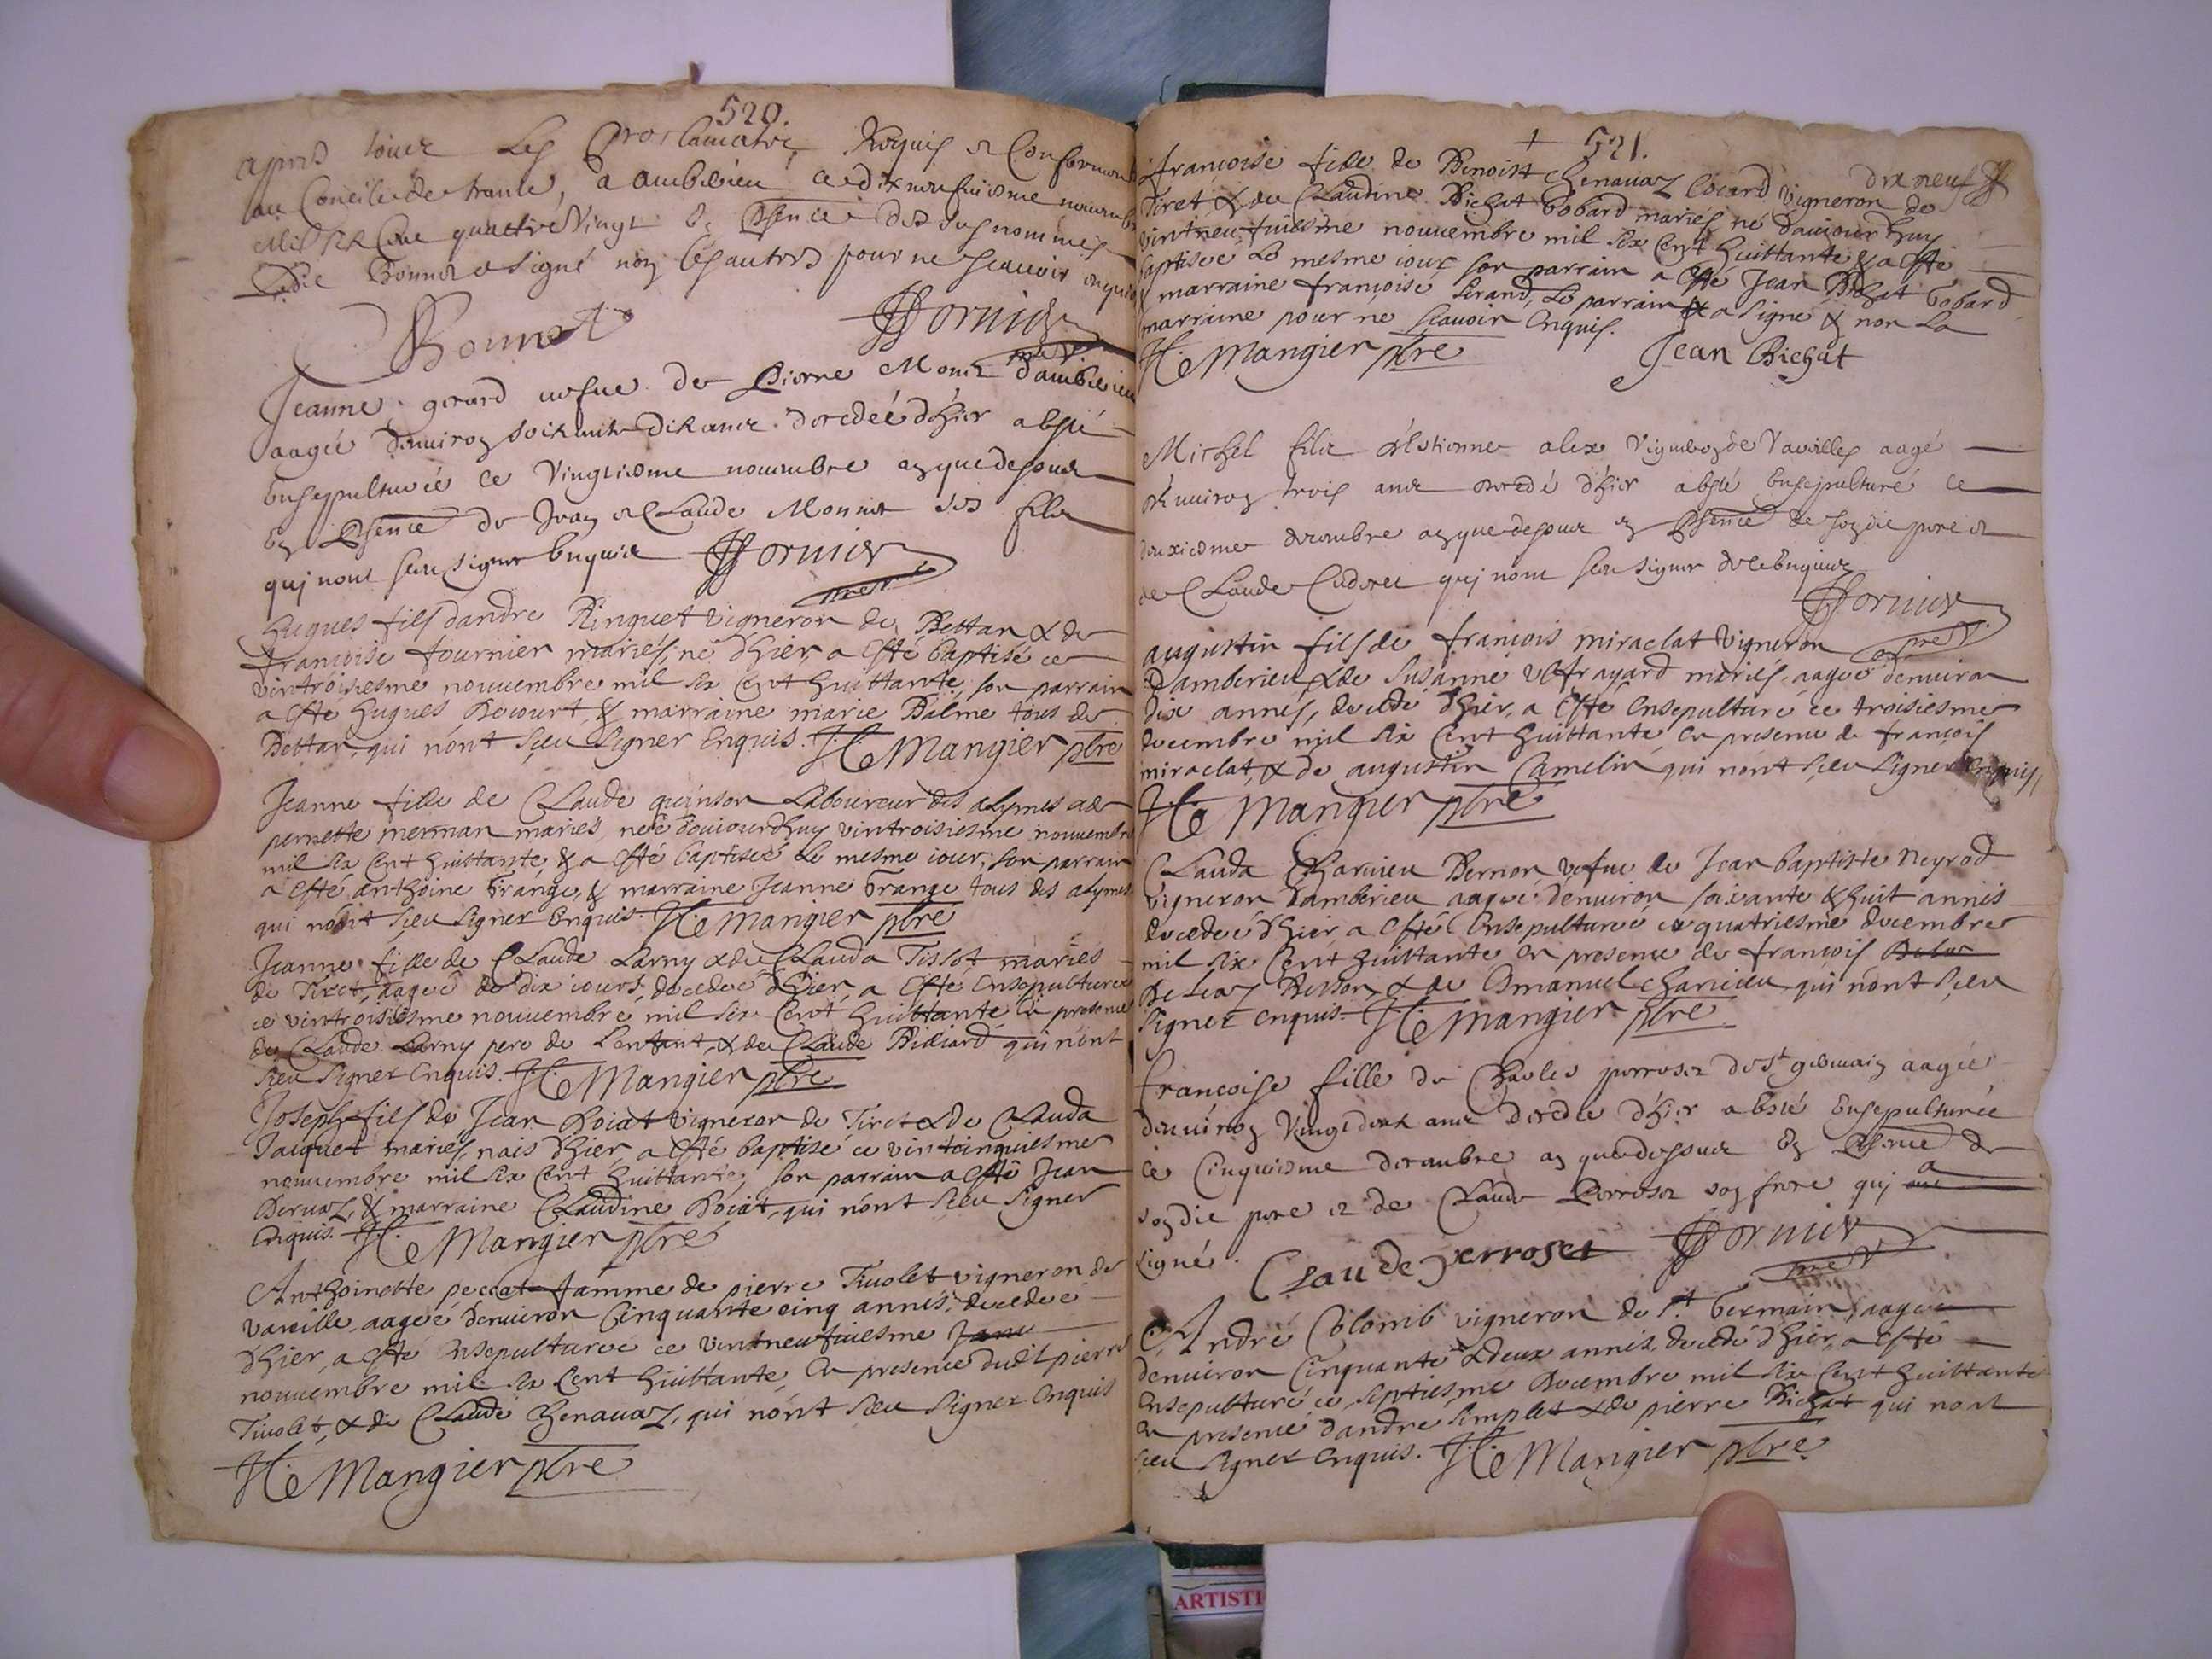 520.
apres toutes les proclamatōns Requis et Conforme
au Concile de trente, a ambérieu ce dix neufuiesme nouembre
Mil six Cent quattre Vingt En Psence des susnommés
Ledit Bonnet a signé non les autres pour ne scauoir enquis
Bonnet JFornier
Jeanne gerard uefue de Pierre Monet d'amberieu
aagée d'enuiron soixante dix ans decedée d'hier a esté
Ensepulturée ce Vingtiesme nouembre an que dessus
En Psence de Jean et Claude Monnet ses fils
qui n'ont sceu signer Enquis JFornier
Hugues fils dandre Ringuet vigneron de Bettan & de
françoise fournier mariés, né d'hier, a esté baptisé ce
vintroisiesme nouuembre mil six cent huittante, son parrain
a esté hugues Decourt, & marraine marie Balme tous de
Bettan, qui n'ont sçeu signer Enquis. H. Mangier pbre
Jeanne fille de Claude quinson Laboureur des alymes & de
pernette merman mariés, neé d'auiourdhuy vintroisiesme nouuembre
mil six cent huittante, & a esté baptiseé le mesme iour, son parrain
a esté anthoine Grange, & marraine Jeanne Grange tous des alymes
qui n'ont sçeu signer Enquis. H. Mangier pbre
Jeanne fille de Claude Larny & de Clauda Tissot mariés
de Tiret, aageé de dix iours, decedeé d'hier, a esté Ensepultureé
ce vintroisiesme nouuembre mil six cent huittante En presence
de Claude Larny pere de l'enfant, & de Claude Billiard qui n'ont
sceu signer Enquis. H. Mangier pbre
Joseph fils de Jean Boiat vigneron de Tiret & de Clauda
Jaquet mariés, nais d'hier, a esté baptisé ce vintcinquiesme
nouuembre mil six cent huittante, son parrain a esté Jean
Deruaz, & marraine Claudine Boiat, qui n'ont sceu signer
Enquis. H. Mangier pbre
Anthoinette peccat famme de pierre Tiuolet vigneron de
vareille aageé denuiron Cinquante cinq annés, decedeé
d'hier, a esté Ensepultureé ce vintneufuiesme
nouuembre mil six cent huittante, En presence dudit pierre
Tiuolet, & de Claude Chenauaz, qui n'ont sceu signer Enquis
H. Mangier pbre
+ 521.
dix neuf
francoise fille de Benoist Chenauaz Cocard vigneron de
Tiret, & de Claudine Bichat Gobard mariés né dauiourdhuy
vintneufuiesme nouuembre mil six cent huittante & a esté
baptiseé le mesme iour son parrain a esté Jean Bichat Gobard
& marraine françoise Serand, Le parrain a signé & non La
marraine pour ne scauoir Enquis. Jean Bichat
H. Mangier pbre
Michel fils d'Estienne alex Vigneron de Vareilles aagé
d'Enuiron trois ans decedé d'hier a esté Ensepulturé ce
deuxiesme decembre an que dessus en Psence de son dit pere et
de Claude Cudurel qui n'ont sceu signer de ce Enquis
JFornier
augustin fils de francois miraclat vigneron
damberieu, & de Susanne Uffrayard mariés, aagee denuiron
dix annés, decedé d'hier, a esté Ensepulturé ce troisiesme
decembre mil six cent huittante En presence de françois
miraclat, & de augustin Camelin qui n'ont sçeu signer enquis
H. Mangier pbre
Clauda Charuieu Bernon vefue de Jean baptiste Neyrod
vigneron damberieu aageé denuiron soixante & huit annés
decedeé d'hier, a esté Ensepultureé ce quatriesme decembre
mil six cent huittante En presence de francois
Beluaz Besson, & de Emanuel Charuieu qui n'ont sceu
signer Enquis. H. Mangier pbre
francoise fille de Charles perroset de st germain aagée
d'enuiron Vingt deux ans decedée d'hier a esté Ensepulturée
ce Cinquiesme decembre an que dessus En Psence de
son dit pere et de Claude Perroset son frere qui a
signé. Claude perroset JFornier
André Colomb vigneron de st. Germain, aageé
denuiron Cinquante & deux annés, decedé d'hier, a esté
Ensepulturé ce septiesme decembre mil six cent huittante
En presence dandre Simplet & de pierre Bichat qui n'ont
sceu signer Enquis. H. Mangier pbre
ARTISTI